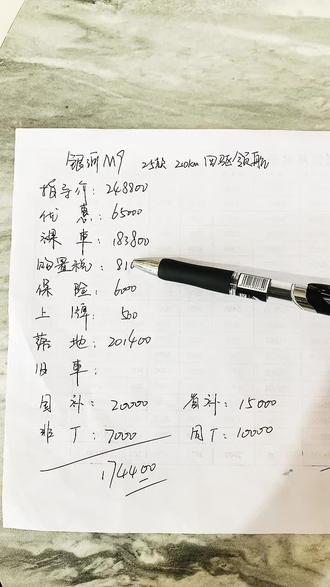 银河M9 25款 210km 四驱领航
指导价: 248800
优惠: 65000
裸车: 183800
购置税: 81
保险: 6000
上牌: 500
落地: 201400
旧车:
国补: 20000 省补: 15000
非T: 7000 周T: 10000
174400